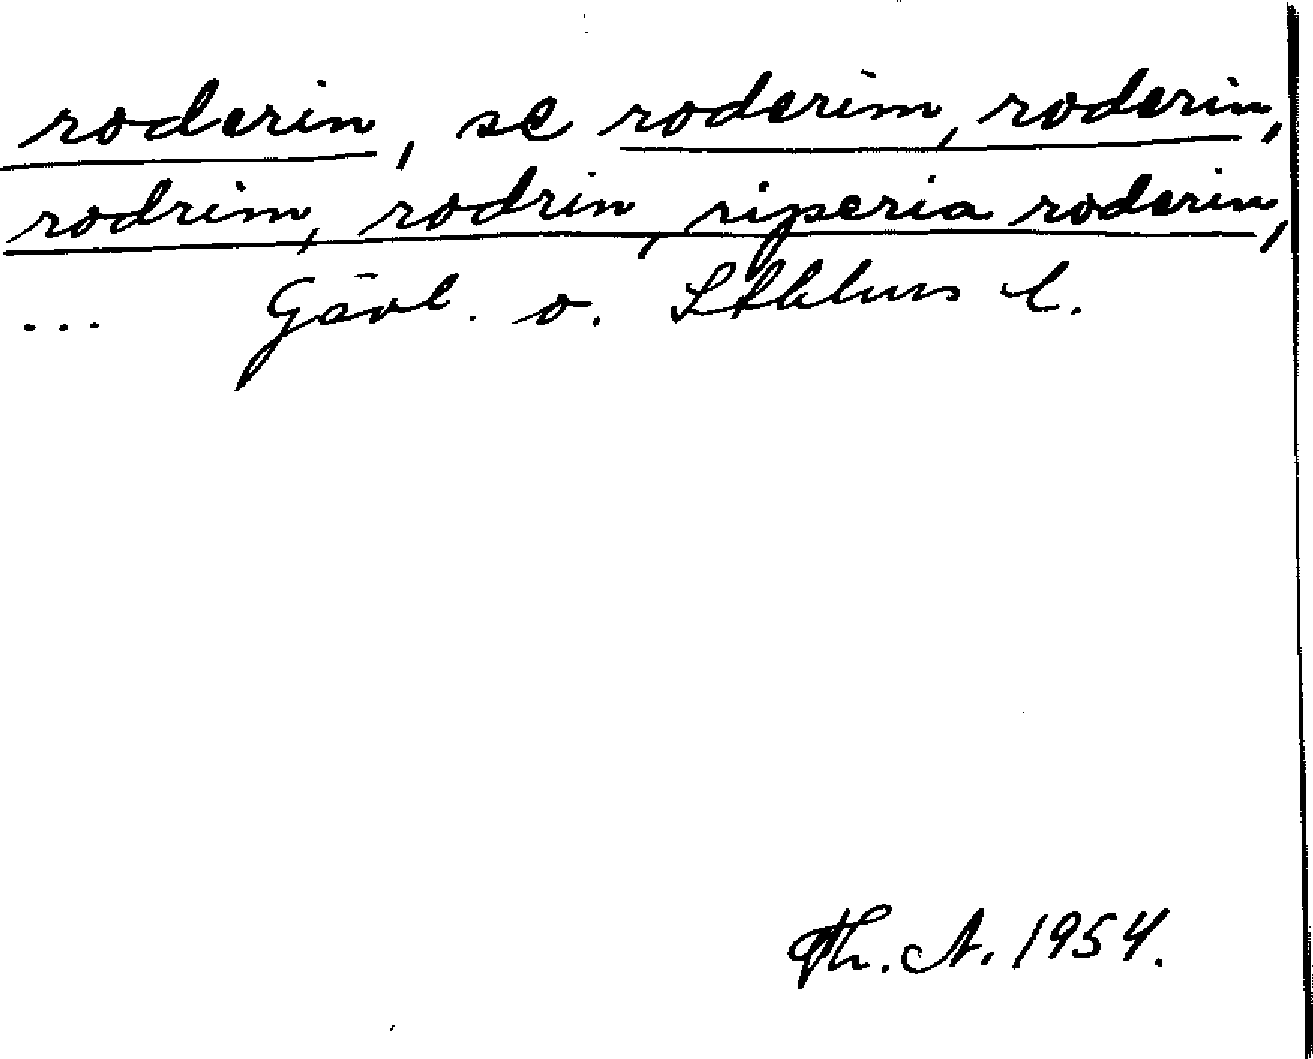 roderin, se roderim, roderin,
rodrim, rodrin, riperia roderin,
... Gävl. o. Sthlms l.
Th. A. 1954.